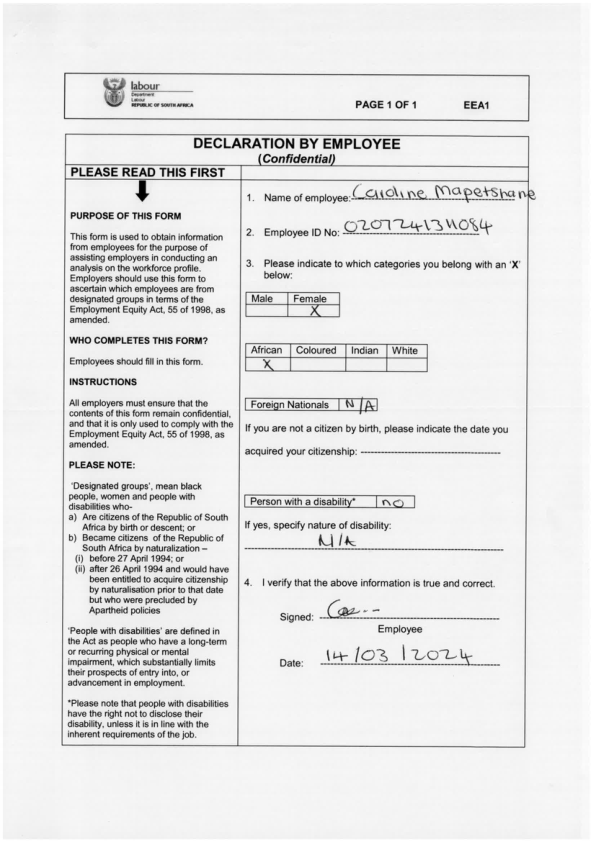 labour
Department
Labour
REPUBLIC OF SOUTH AFRICA
PAGE 1 OF 1 EEA1
DECLARATION BY EMPLOYEE
(Confidential)
PLEASE READ THIS FIRST
PURPOSE OF THIS FORM
This form is used to obtain information
from employees for the purpose of
assisting employers in conducting an
analysis on the workforce profile.
Employers should use this form to
ascertain which employees are from
designated groups in terms of the
Employment Equity Act, 55 of 1998, as
amended.
WHO COMPLETES THIS FORM?
Employees should fill in this form.
INSTRUCTIONS
All employers must ensure that the
contents of this form remain confidential,
and that it is only used to comply with the
Employment Equity Act, 55 of 1998, as
amended.
PLEASE NOTE:
'Designated groups', mean black
people, women and people with
disabilities who-
a) Are citizens of the Republic of South
Africa by birth or descent; or
b) Became citizens of the Republic of
South Africa by naturalization –
(i) before 27 April 1994; or
(ii) after 26 April 1994 and would have
been entitled to acquire citizenship
by naturalisation prior to that date
but who were precluded by
Apartheid policies
'People with disabilities' are defined in
the Act as people who have a long-term
or recurring physical or mental
impairment, which substantially limits
their prospects of entry into, or
advancement in employment.
*Please note that people with disabilities
have the right not to disclose their
disability, unless it is in line with the
inherent requirements of the job.
1. Name of employee: Caroline Mapetshane
2. Employee ID No: 0207241311084
3. Please indicate to which categories you belong with an 'X'
below:
Male Female
X
African Coloured Indian White
X
Foreign Nationals N/A
If you are not a citizen by birth, please indicate the date you
acquired your citizenship:
Person with a disability* no
If yes, specify nature of disability:
N/A
4. I verify that the above information is true and correct.
Signed:
Employee
Date: 14/03/2024